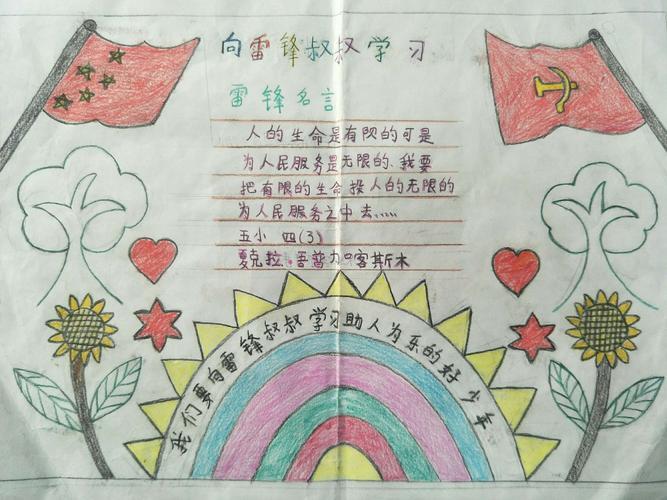 向雷锋叔叔学习
雷锋名言
人的生命是有限的可是
为人民服务是无限的、我要
把有限的生命投人的无限的
为人民服务之中去……
五小 四(3)
夏克拉·吾普力喀斯木
我们要向雷锋叔叔学习助人为乐的好少年